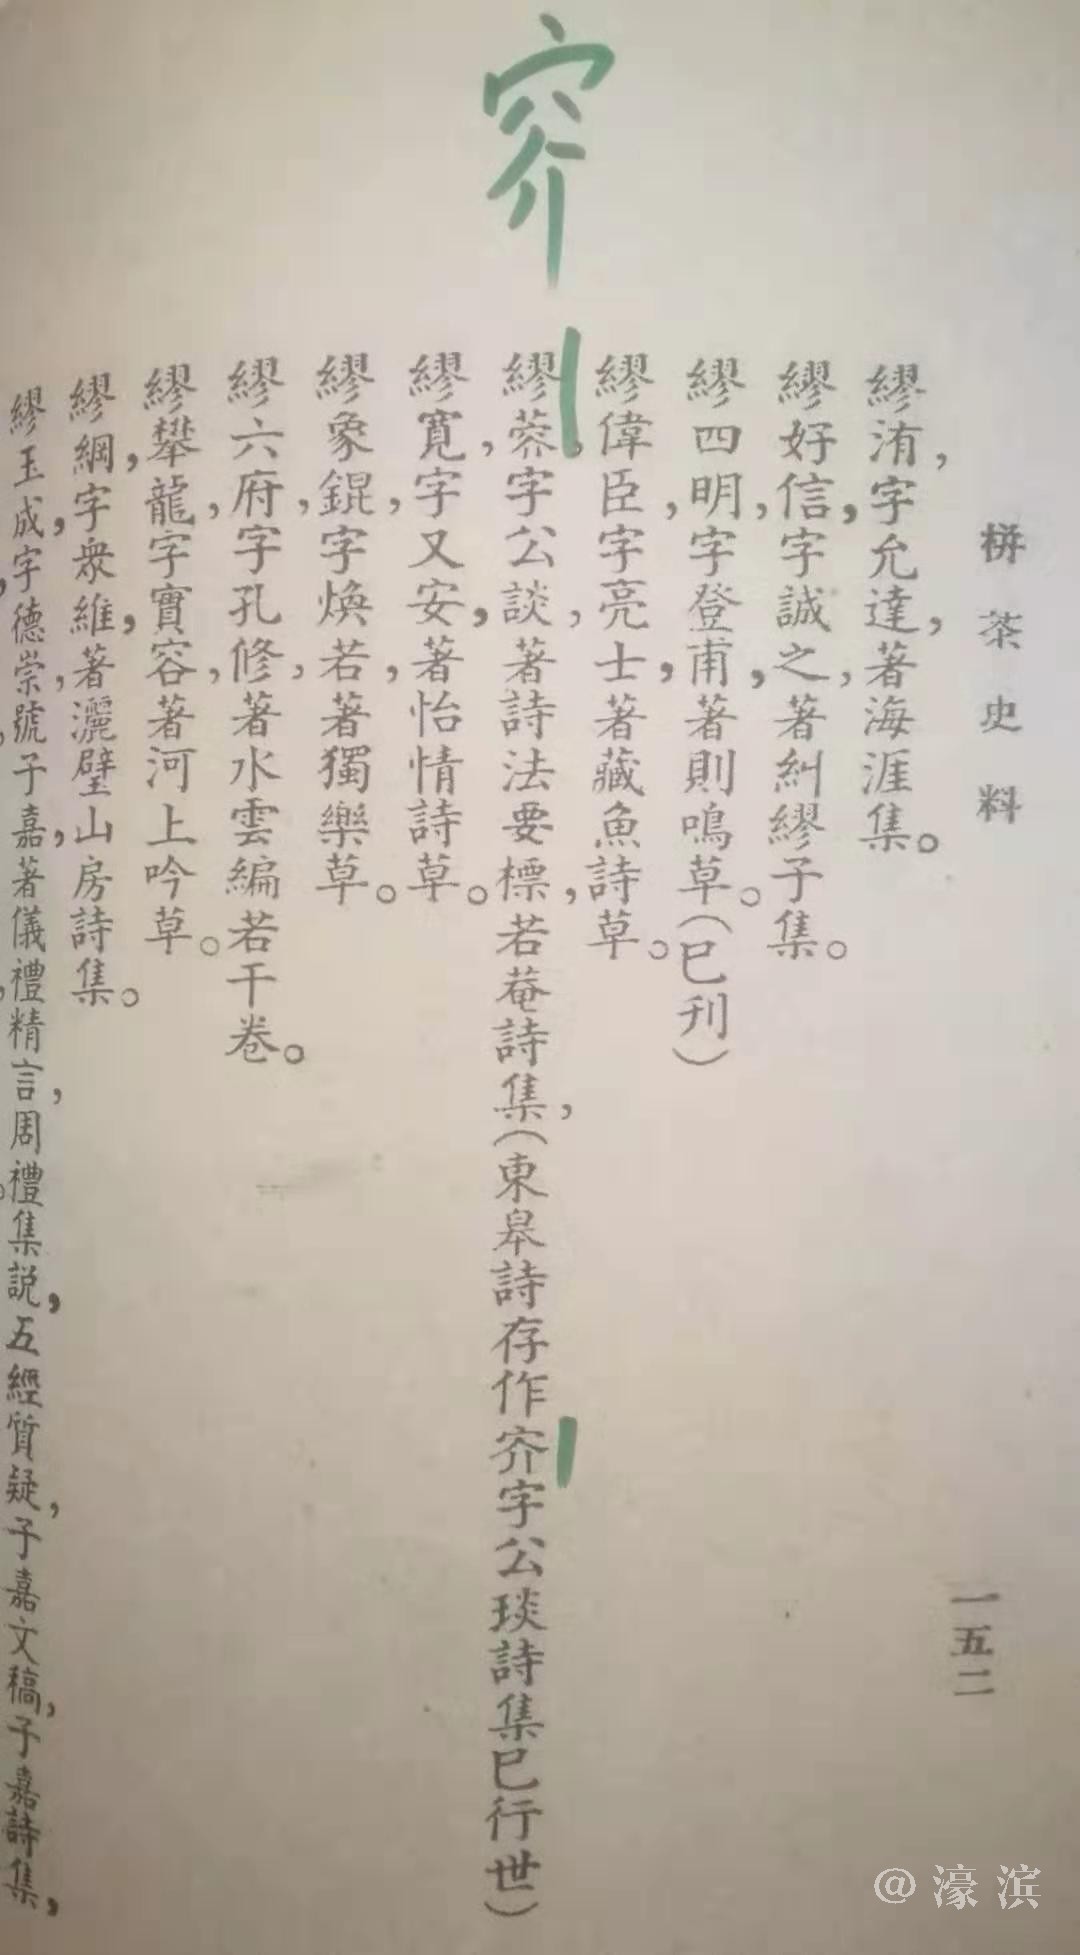 穼
栟茶史料
繆洧，字允達，著海涯集。
繆好信，字誠之，著糾繆子集。
繆四明，字登甫，著則鳴草。（已刊）
繆偉臣，字亮士，著藏魚詩草。
繆蔉，字公談，著詩法要標，若菴詩集，（東皋詩存作穼字公琰詩集已行世）
繆寬，字又安，著怡情詩草。
繆象錕，字煥若，著獨樂草。
繆六府，字孔修，著水雲編若干卷。
繆攀龍，字實容，著河上吟草。
繆綱，字衆維，著灑壁山房詩集。
繆玉成，字德崇，號子嘉，著儀禮精言，周禮集説，五經質疑，子嘉文稿，子嘉詩集，
一五二
@濠滨